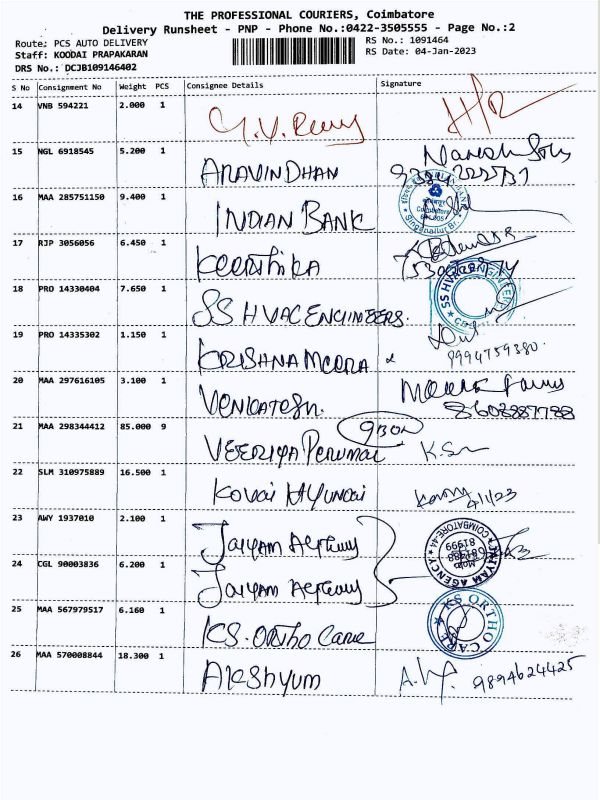 THE PROFESSIONAL COURIERS, Coimbatore
Delivery Runsheet - PNP - Phone No.:0422-3505555 - Page No.:2
Route: PCS AUTO DELIVERY
RS No.: 1091464
Staff: KOODAI PRAPAKARAN
RS Date: 04-Jan-2023
DRS No.: DCJB109146402
S No Consignment No Weight PCS Consignee Details Signature
14 VNB 594221 2.000 1
15 NGL 6918545 5.200 1 ARAVINDHAN
16 MAA 285751150 9.400 1 INDIAN BANK
17 RJP 3056056 6.450 1 Keerthika
18 PRO 14330404 7.650 1 SS HVAC ENGINEERS.
19 PRO 14335302 1.150 1 KRISHNA MEERA 9994759380.
20 MAA 297616105 3.100 1 VENKATESH.
21 MAA 298344412 85.000 9 VEERIYA PERUMAL 9BOX
22 SLM 310975889 16.500 1 KOVAI HYUNDAI 4/1/23
23 AWY 1937010 2.100 1 JAIYAM AGENCY
24 CGL 90003836 6.200 1 JAIYAM AGENCY
25 MAA 567979517 6.160 1 KS.ORTHO CARE KS ORTHO CARE
26 MAA 570008844 18.300 1 AKSHYUM 9894624425